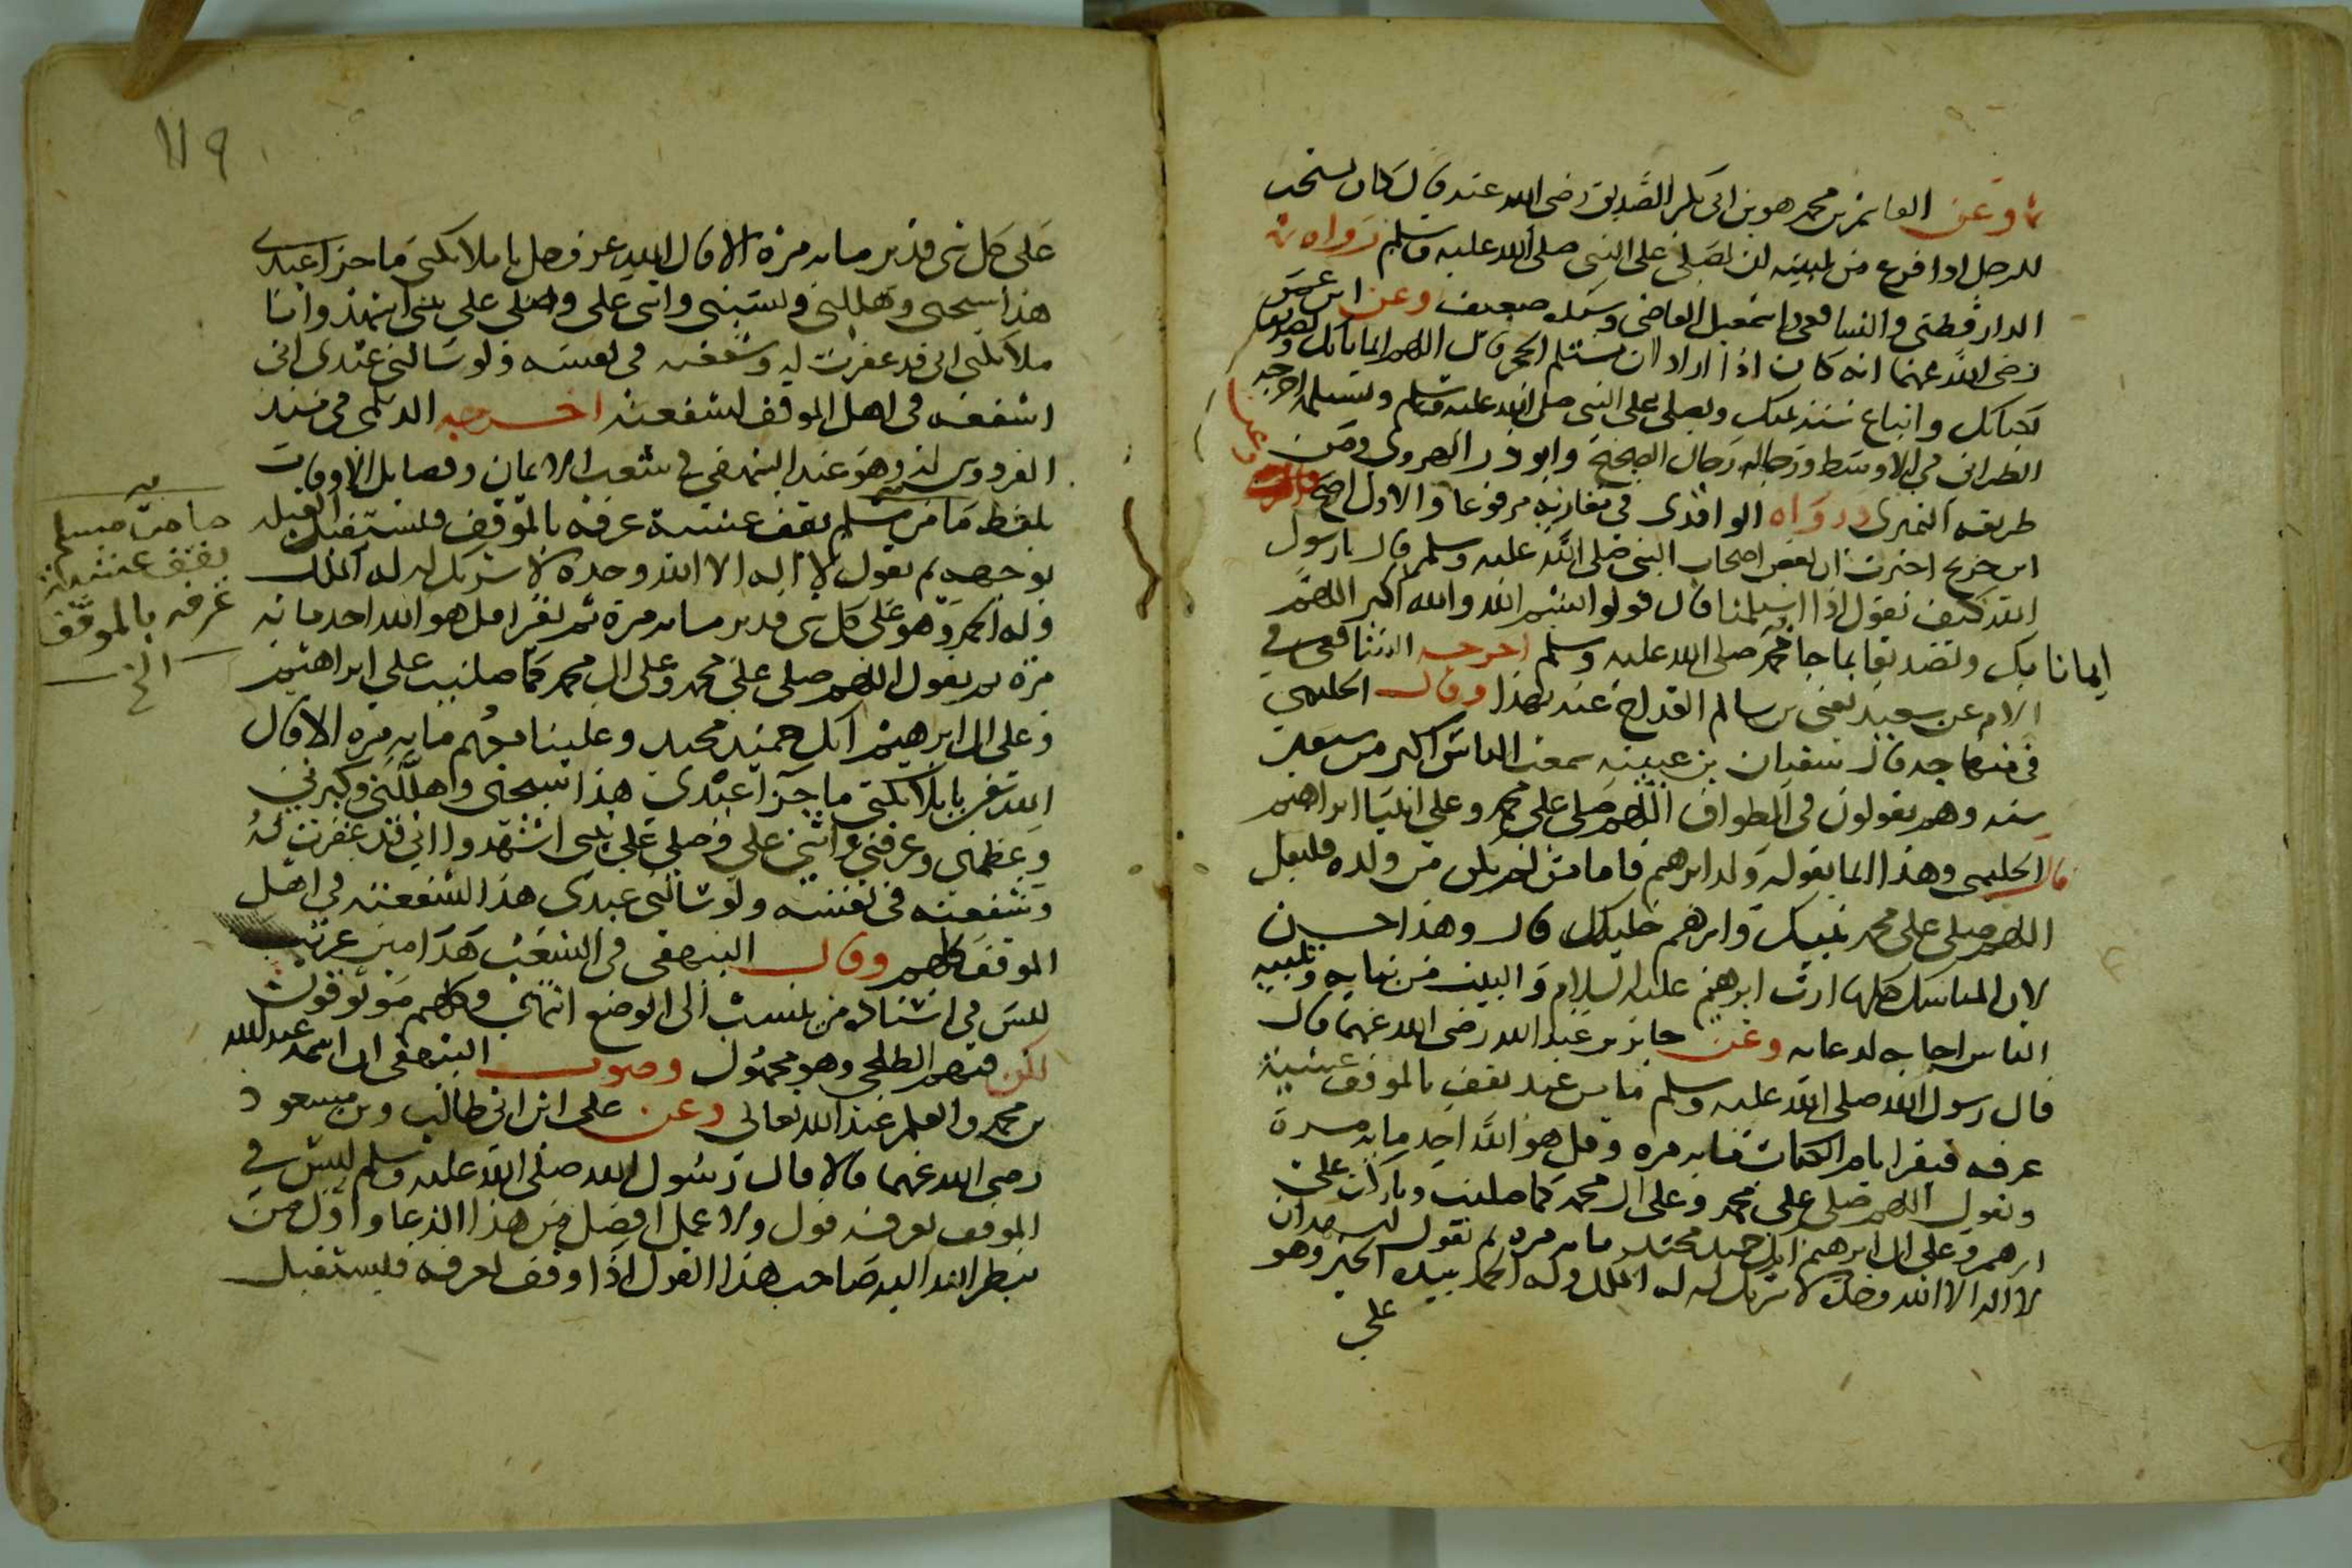 وعن القاسم بن محمد هو بن ابى بكر الصديق رضى الله عنه قال كان يستحب
للرجل اذا فرغ من تلبيته ان يصلى على النبى صلى الله عليه وسلم رواه
الدارقطنى والشافعى واسمعيل القاضى وسنده ضعيف وعن ابن عمر
رضى الله عنهما انه كان اذا اراد ان يستلم الحجر قال اللهم ايمانا بك وتصديقا
بكتابك واتباع سنة نبيك ويصلى على النبى صلى الله عليه وسلم ويستلمه اخرجه
الطبرانى فى الاوسط ورجاله رجال الصحيح وابو ذر الهروى ومن
طريقه النميرى ورواه الواقدى فى مغازيه مرفوعا والاول اصح
ابن جريج اخبرت ان بعض اصحاب النبى صلى الله عليه وسلم قال يا رسول
الله كيف نقول اذا استلمنا قال قولوا بسم الله والله اكبر اللهم
ايمانا بك وتصديقا بما جا به محمد صلى الله عليه وسلم اخرجه الشافعى فى
الام عن سعيد يعنى بن سالم القداح عنه بهذا وقال الحليمى
فى منهاجه قال سفيان بن عيينه سمعت الناس اكثر من سبعين
سنه وهم يقولون فى الطواف اللهم صلى على محمد وعلى ابينا ابراهيم
قال الحليمى وهذا انما يقوله ولد ابراهيم فاما من لم يكن من ولده فليقل
اللهم صلى على محمد نبيك وابراهيم خليلك قال وهذا احسن
لان المناسك كلها ارث ابراهيم عليه السلام والبيت من بنايه وتلبيه
الناس اجابه لدعايه وعن جابر بن عبد الله رضى الله عنهما قال
قال رسول الله صلى الله عليه وسلم ما من عبد يقف بالموقف عشية
عرفه فيقرا بام الكتاب مايه مره وقل هو الله احد مايه مرة
وتقول اللهم صلى على محمد وعلى ال محمد كما صليت وباركت على
ابرهيم وعلى ال ابرهيم انك حميد مجيد مايه مره ثم تقول اشهد ان
لا اله الا الله وحده لا شريك له له الملك وله الحمد بيده الخير وهو
على
١١٩
على كل شى قدير مايه مرة الا قال الله عز وجل يا ملايكتى ما جزا عبدى
هذا سبحنى وهللنى ونسبنى واثنى على وصلى على نبيى اشهدوا يا
ملايكتى انى قد غفرت له وشفعته فى نفسه ولو سالنى عبدى ان
اشفعه فى اهل الموقف لشفعته اخرجه الديلمى فى مسند
الفردوس له وهو عند البيهقى فى شعب الايمان وفضايل الاوقات
بلفظ ما من مسلم يقف عشية عرفه بالموقف فيستقبل القبله
بوجهه ثم يقول لا اله الا الله وحده لا شريك له له الملك
وله الحمد وهو على كل شى قدير مايه مرة ثم يقرا قل هو الله احد مايه
مرة ثم يقول اللهم صلى على محمد وعلى ال محمد كما صليت على ابراهيم
وعلى ال ابرهيم انك حميد مجيد وعلينا معهم مايه مره الا قال
الله تعالى يا ملايكتى ما جزا عبدى هذا سبحنى وهللنى وكبرنى
وعظمنى وعرفنى واثنى على وصلى على نبيى اشهدوا انى قد غفرت له
وشفعته فى نفسه ولو سالنى عبدى هذا لشفعته فى اهل
الموقف كلهم وقال البيهقى فى الشعب هذا متن غريب
ليس فى اسناده من ينسب الى الوضع انتهى وكلهم موثوقون
لكن فيهم الطلحى وهو مجهول وصوب البيهقى ان اسمه عبد الله
بن محمد والعلم عند الله تعالى وعن على ابن ابى طالب وبن مسعود
رضى الله عنهما قالا قال رسول الله صلى الله عليه وسلم ليس فى
الموقف بعرفه قول ولا عمل افضل من هذا الدعا واول من
ينظر الله اليه صاحب هذا القول اذا وقف بعرفه فيستقبل
ما من مسلم
يقف عشية
عرفه بالموقف
الخ